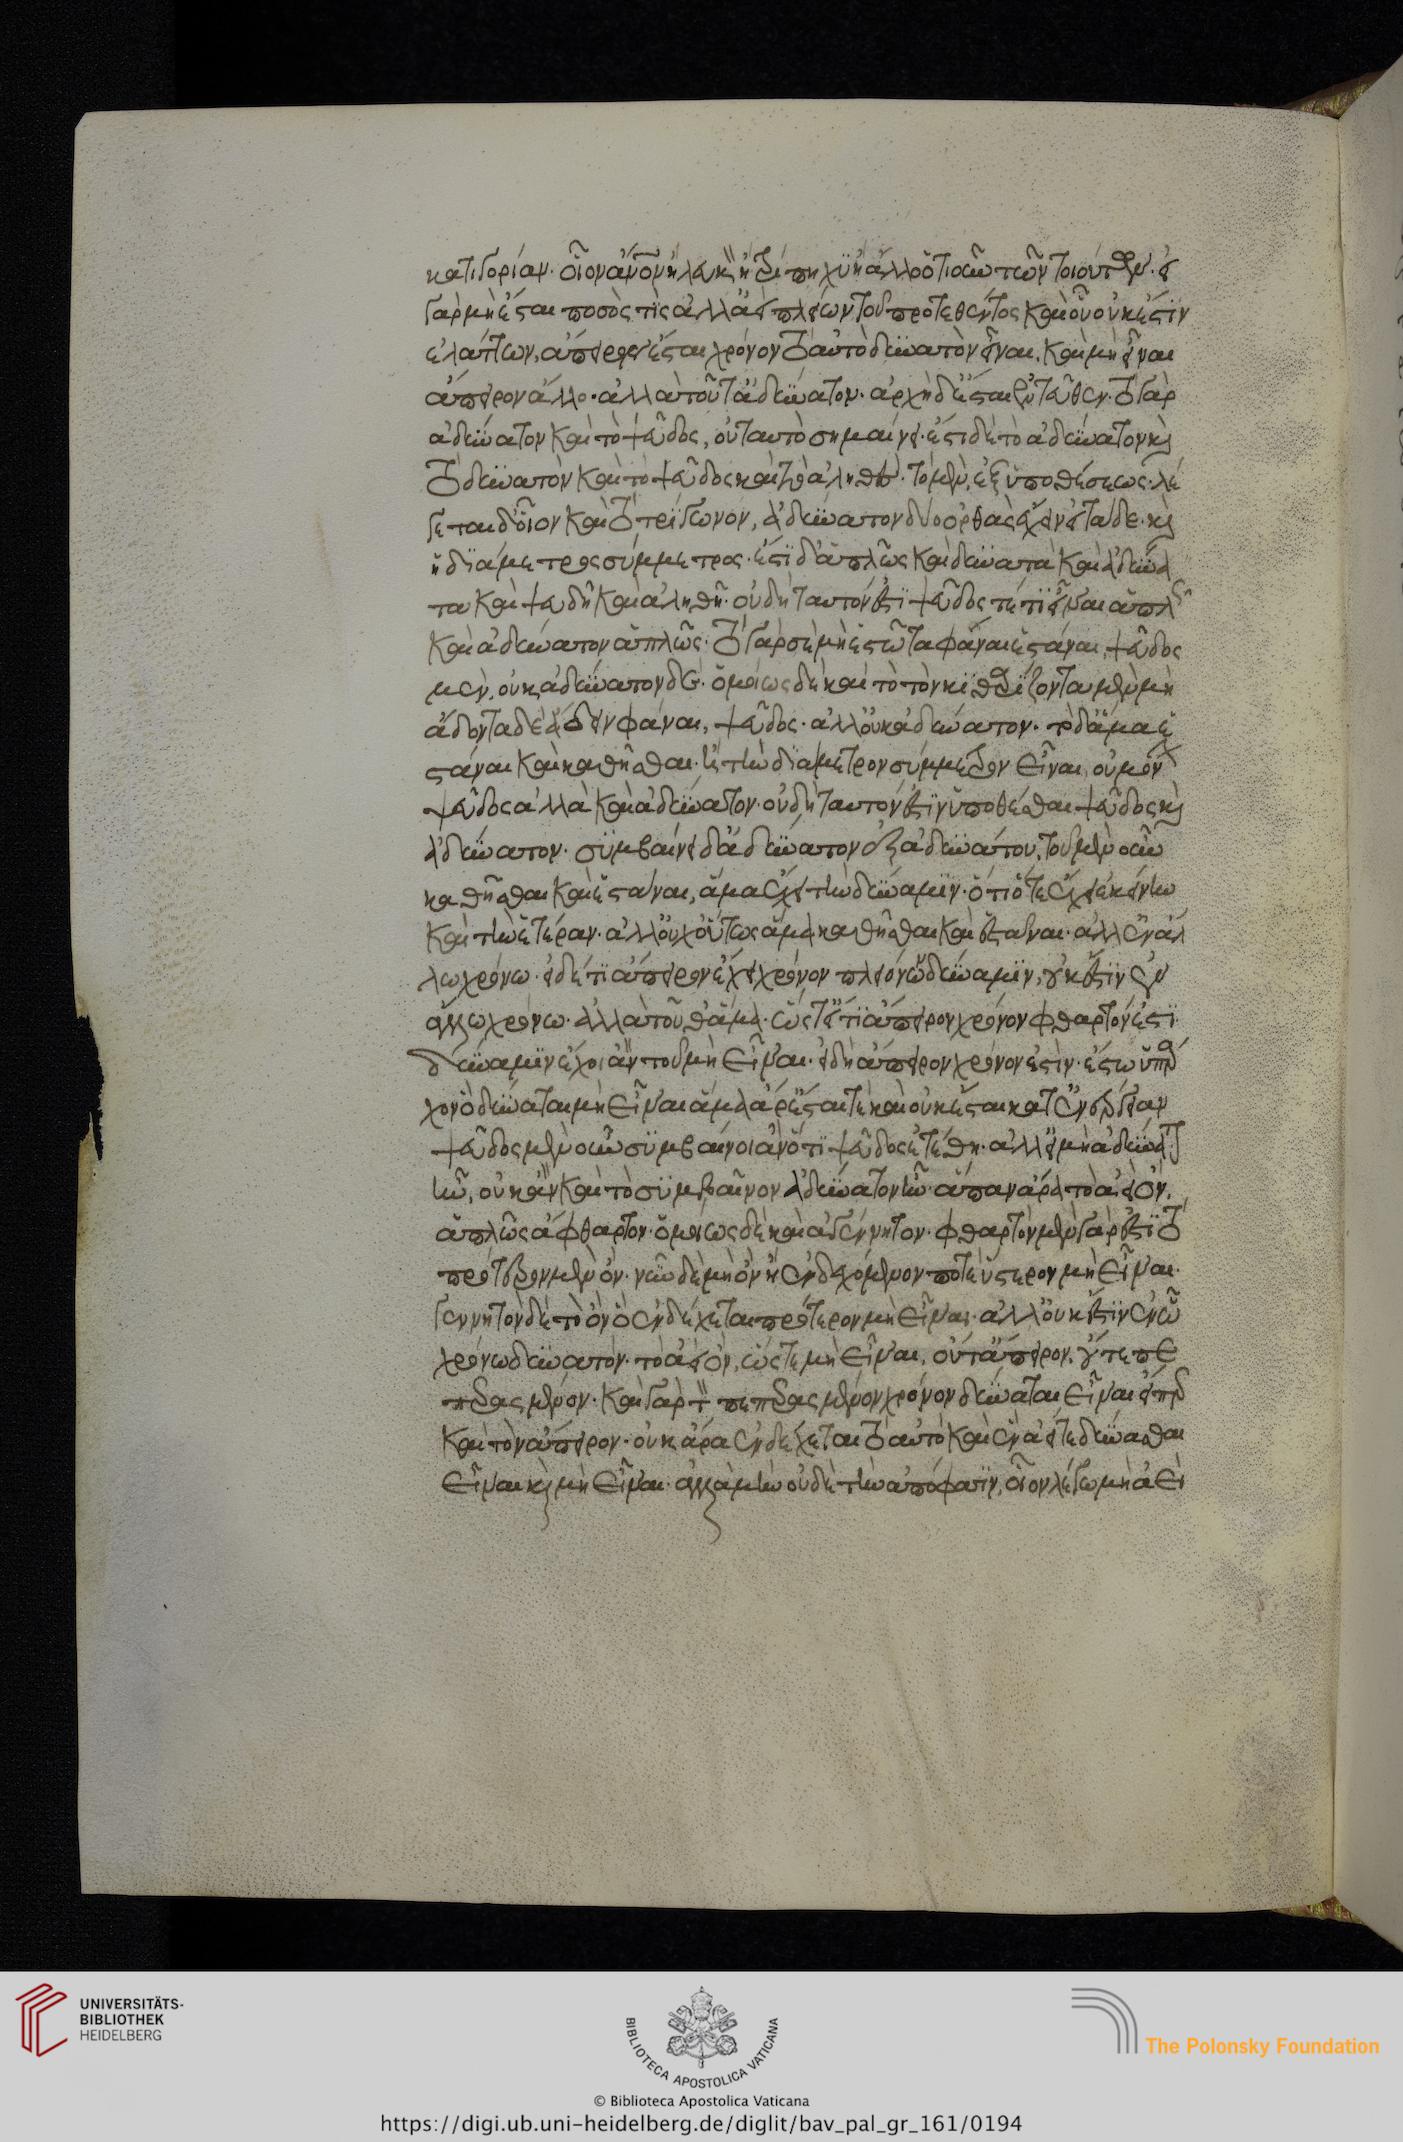 κατιγορίαν· οἷον ἄνθρωπον ἢ λευκὸν ἢ τρίπηχϋ ἢ ἀλλ' ὁτιοῦν τῶν τοιούτων· εἰ
γὰρ μὴ ἔσται ποσὸς τὶς ἀλλ' ἀεὶ πλείων τοῦ προτεθέντος καὶ οὗ οὐκ ἐστὶν
ἐλάττων, ἄπειρον ἔσται χρόνον τὸ αὐτὸ δυνατὸν εἶναι, καὶ μὴ εἶναι
ἄπειρον ἄλλο· ἀλλὰ τοῦτ' ἀδύνατον· ἀρχὴ δ' ἔσται ἐντεῦθεν· τὸ γὰρ
ἀδύνατον καὶ τὸ ψεῦδος, οὐ ταυτὸ σημαίνει· ἔστι δὲ τὸ ἀδύνατον καὶ
τὸ δυνατὸν καὶ τὸ ψεῦδος καὶ τὸ ἀληθὲς· τὸ μὲν, ἐξ ὑποθέσεως· λέ
γεται δ' οἷον καὶ τὸ τρίγωνον, ἀδύνατον δύο ὀρθὰς ἔχειν εἰ τάδε· καὶ
ἡ διάμετρος σύμμετρος· ἔστι δ' ἁπλῶς καὶ δυνατὰ καὶ ἀδύνα
τα καὶ ψευδῆ καὶ ἀληθῆ· οὐ δὴ ταυτόν ἐστι ψεῦδος τέ τι εἶναι ἁπλῶς
καὶ ἀδύνατον ἁπλῶς· τὸ γὰρ σὲ μὴ ἑστῶτα φάναι ἑστάναι, ψεῦδος
μὲν, οὐκ ἀδύνατον δέ· ὁμοίως δὲ καὶ τὸ τὸν κιθαρίζοντα μὲν μὴ
ἄδοντα δὲ ἄδειν φάναι, ψεῦδος· ἀλλ' οὐκ ἀδύνατον· τὸ δ' ἅμα ἑ
στάναι καὶ καθῆσθαι· καὶ τὴν διάμετρον σύμμετρον εἶναι, οὐ μόνον
ψεῦδος ἀλλὰ καὶ ἀδύνατον· οὐ δὴ ταυτόν ἐστιν ὑποθέσθαι ψεῦδος καὶ
ἀδύνατον· συμβαίνει δ' ἀδύνατον ἐξ ἀδυνάτου· τοῦ μὲν οὖν
καθῆσθαι καὶ ἑστάναι, ἅμα ἔχει τὴν δύναμιν· ὅτι ὅτε ἔχει ἐκείνην
καὶ τὴν ἑτέραν· ἀλλ' οὐχ οὕτως ἅμα καθῆσθαι καὶ ἑστάναι· ἀλλ' ἐν ἄλ
λω χρόνω· εἰ δέ τι ἄπειρον ἔχει χρόνον πλειόνων δύναμιν, οὐκ ἔστιν ἐν
ἄλλω χρόνω· ἀλλὰ τοῦθ' ἅμα· ὥστ' εἴ τι ἄπειρον χρόνον φθαρτόν ἐστι
δύναμιν ἔχοι ἂν τοῦ μὴ εἶναι· εἰ δὴ ἄπειρον χρόνον ἐστὶν· ἔστω ὑπάρ
χον ὃ δύναται μὴ εἶναι ἅμα ἄρ' ἔσται τὲ καὶ οὐκ ἔσται κατ' ἐνέργειαν
ψεῦδος μὲν οὖν συμβαίνοι ἂν ὅτι ψεῦδος ἐτέθη· ἀλλ' εἰ μὴ ἀδύνατον
ἦν, οὐκ ἂν καὶ τὸ συμβαῖνον ἀδύνατον ἦν· ἅπαν ἄρα τὸ ἀεὶ ὂν,
ἁπλῶς ἄφθαρτον· ὁμοίως δὲ καὶ ἀγέννητον· φθαρτὸν μὲν γάρ ἐστι τὸ
πρότερον μὲν ὄν· νῦν δὲ μὴ ὂν ἢ ἐνδεχόμενον ποτὲ ὕστερον μὴ εἶναι·
γεννητὸν δὲ τὸ ὂν ὃ ἐνδέχεται πρότερον μὴ εἶναι· ἀλλ' οὐκ ἔστιν ἐν ᾧ
χρόνω δυνατὸν· τὸ ἀεὶ ὂν, ὥστε μὴ εἶναι, οὔτ' ἄπειρον, οὔτε πε
περασμένον· καὶ γὰρ τὸν πεπερασμένον χρόνον δύναται εἶναι εἴπερ
καὶ τὸν ἄπειρον· οὐκ ἄρα ἐνδέχεται τὸ αὐτὸ καὶ ἓν ἀεί τε δύνασθαι
εἶναι καὶ μὴ εἶναι· ἀλλὰ μὴν οὐδὲ τὴν ἀπόφασιν, οἷον λέγω μὴ ἀεὶ
UNIVERSITÄTS-
BIBLIOTHEK
HEIDELBERG
BIBLIOTECA APOSTOLICA VATICANA
The Polonsky Foundation
© Biblioteca Apostolica Vaticana
https://digi.ub.uni-heidelberg.de/diglit/bav_pal_gr_161/0194